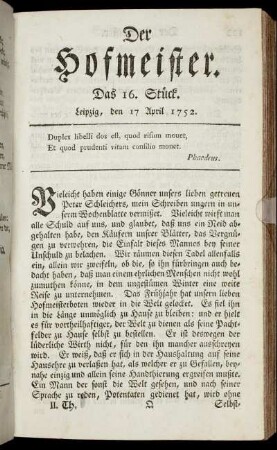 Der
Hofmeister.
Das 16. Stück.
Leipzig, den 17 April 1752.
Duplex libelli dos est, quod risum mouet,
Et quod prudenti vitam consilio monet.
Phaedrus.
Vieleicht haben einige Gönner unsers lieben getreuen
Peter Schleichers, mein Schreiben ungern in un-
serm Wochenblatte vermisset. Vieleicht wirft man
alle Schuld auf uns, und glaubet, daß uns ein Neid ab-
gehalten habe, den Käufern unsrer Blätter, das Vergnü-
gen zu verwehren, die Einfalt dieses Mannes bey seiner
Unschuld zu belachen. Wir räumen diesen Tadel allenfalls
ein, allein wir zweifeln, ob die, so ihn fürbringen auch be-
dacht haben, daß man einem ehrlichen Menschen nicht wohl
zumuthen könne, in dem ungestümen Winter eine weite
Reise zu unternehmen. Das Frühjahr hat unsern lieben
Hofmeisterboten wieder in die Welt gelocket. Es fiel ihn
in die Länge unmöglich zu Hause zu bleiben: und er hielt
es für vortheilhaftiger, der Welt zu dienen als seine Pacht-
felder zu Hause selbst zu bestellen. Er ist deswegen der
lüderliche Wirth nicht, für den ihn mancher ausschreyen
wird. Er weiß, daß er sich in der Haushaltung auf seine
Hansehre zu verlassen hat, als welcher er zu Gefallen, bey-
nahe einzig und allein seine Handthierung ergreifen mußte.
Ein Mann der sonst die Welt gesehen, und nach seiner
Sprache zu reden, Potentaten gedienet hat, wird ohne
II. Th. Q Selbst-